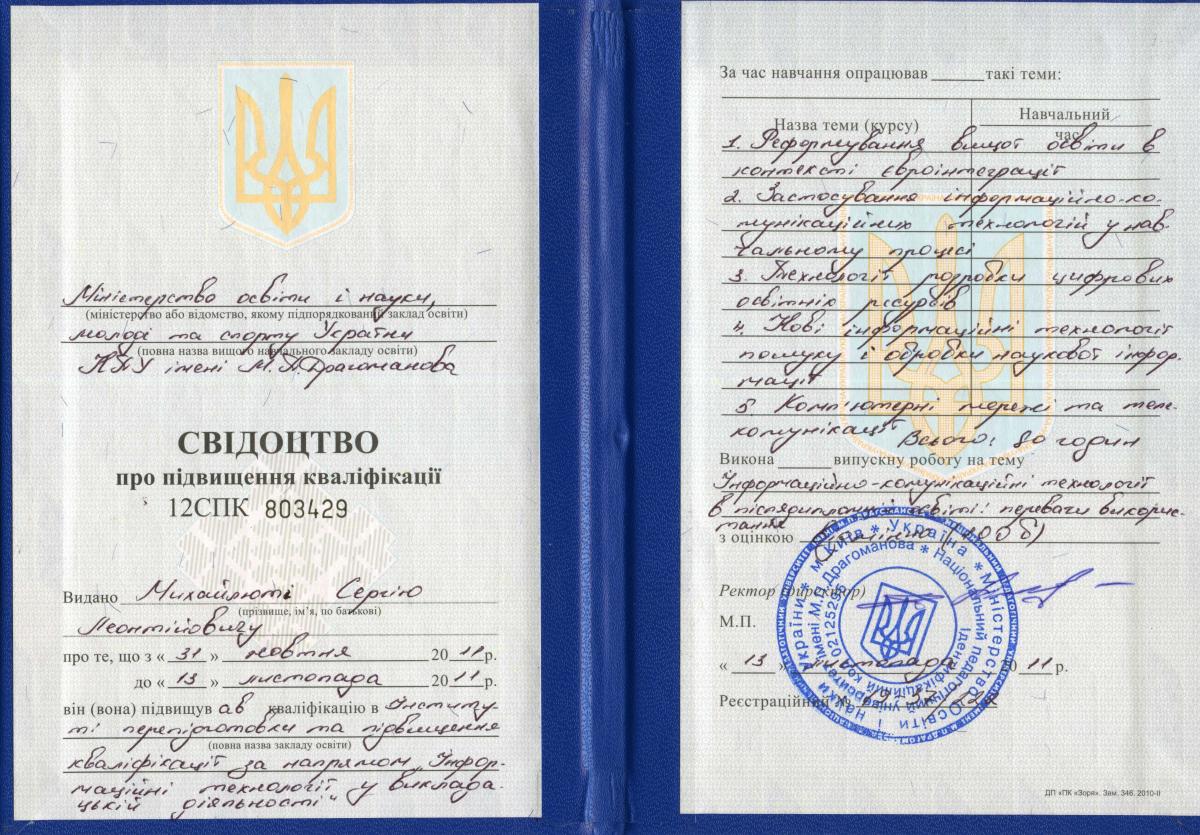 Міністерство освіти і науки,
(міністерство або відомство, якому підпорядкований заклад освіти)
молоді та спорту України
(повна назва вищого навчального закладу освіти)
НПУ імені М.П.Драгоманова
СВІДОЦТВО
про підвищення кваліфікації
12СПК 803429
Видано Михайлюті Сергію
(прізвище, ім’я, по батькові)
Леонтійовичу
про те, що з « 31 » жовтня 20 11 р.
до « 13 » листопада 20 11 р.
він (вона) підвищув ав кваліфікацію в Інститу-
ті перепідготовки та підвищення
(повна назва закладу освіти)
кваліфікації за напрямом „Інфор-
маційні технології у виклада-
цькій діяльності“
За час навчання опрацював ______ такі теми:
Назва теми (курсу)
Навчальний
час
1. Реформування вищої освіти в
контексті євроінтеграції
2. Застосування інформаційно-ко-
мунікаційних технологій у нав-
чальному процесі
3. Технології розробки цифрових
освітніх ресурсів
4. Нові інформаційні технології
пошуку і обробки наукової інфор-
мації
5 Комп'ютерні мережі та теле-
комунікації Всього: 80 годин
Викона ______ випускну роботу на тему
Інформаційно-комунікаційні технології
в післядипломній освіті: переваги викорис-
тання
з оцінкою відмінно (100б)
Ректор (директор)
М.П.
« 13 » листопада 20 11 р.
Реєстраційний №
Україна * м.Київ * Міністерство освіти і науки України *
Національний педагогічний університет імені М.П.Драгоманова *
Ідентифікаційний код 02125295
ДП «ПК «Зоря». Зам. 346. 2010-II